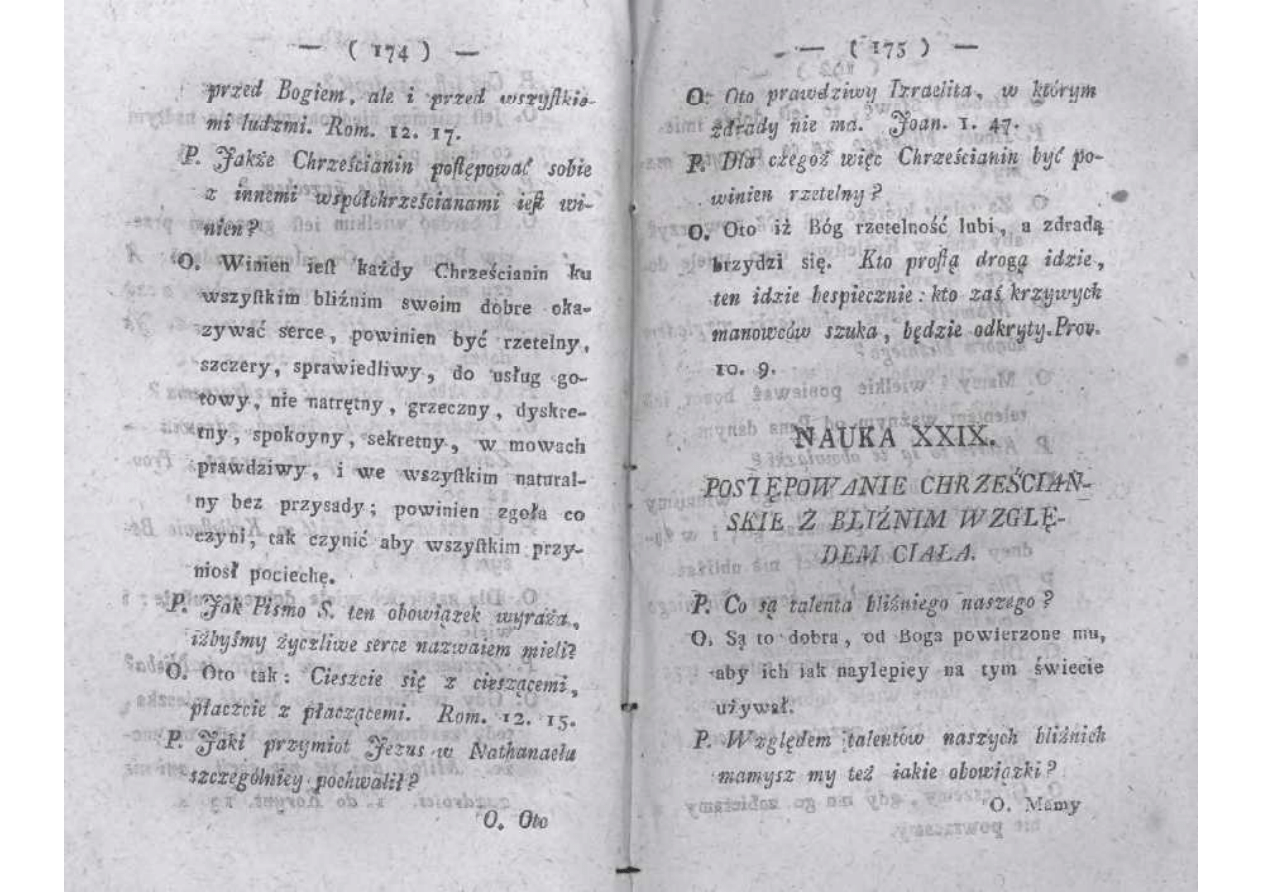 — ( 174 ) —
przed Bogiem, ale i przed wszyſtkie-
mi ludzmi. Rom. 12. 17.
P. Jakże Chrześcianin poſtępować sobie
z innemi wspołchrześcianami ieſt wi-
nien?
O. Winien ieſt każdy Chrześcianin ku
wszyſtkim bliźnim swoim dobre oka-
zywać serce, powinien być rzetelny,
szczery, sprawiedliwy, do usług go-
towy, nie natrętny, grzeczny, dyskre-
tny, spokoyny, sekretny, w mowach
prawdziwy, i we wszyſtkim natural-
ny bez przysady; powinien zgoła co
czyni, tak czynić aby wszyſtkim przy-
niosł pociechę.
P. Jak Pismo S. ten obowiązek wyraża,
iżbyśmy życzliwe serce nazwaiem mieli?
O. Oto tak: Cieszcie się z cieszącemi,
płaczcie z płaczącemi. Rom. 12. 15.
P. Jaki przymiot Jezus w Nathanaelu
szczegolniey pochwalił?
O. Oto
— ( 175 ) —
O. Oto prawdziwy Izraelita, w którym
zdrady nie ma. Joan. 1. 47.
P. Dla czegoż więc Chrześcianin być po-
winien rzetelny?
O. Oto iż Bóg rzetelność lubi, a zdradą
brzydzi się. Kto proſtą drogą idzie,
ten idzie bespiecznie: kto zaś krzywych
manowców szuka, będzie odkryty. Prov.
10. 9.
NAUKA XXIX.
POSTĘPOWANIE CHRZEŚCIAŃ-
SKIE Z BLIŹNIM WZGLĘ-
DEM CIAŁA.
P. Co są talenta bliźniego naszego?
O. Są to dobra, od Boga powierzone mu,
aby ich iak naylepiey na tym świecie
używał.
P. Względem talentow naszych bliźnich
mamysz my też iakie obowiązki?
O. Mamy